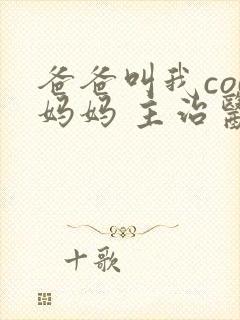 爸爸叫我co
妈妈 主治醫
十歌